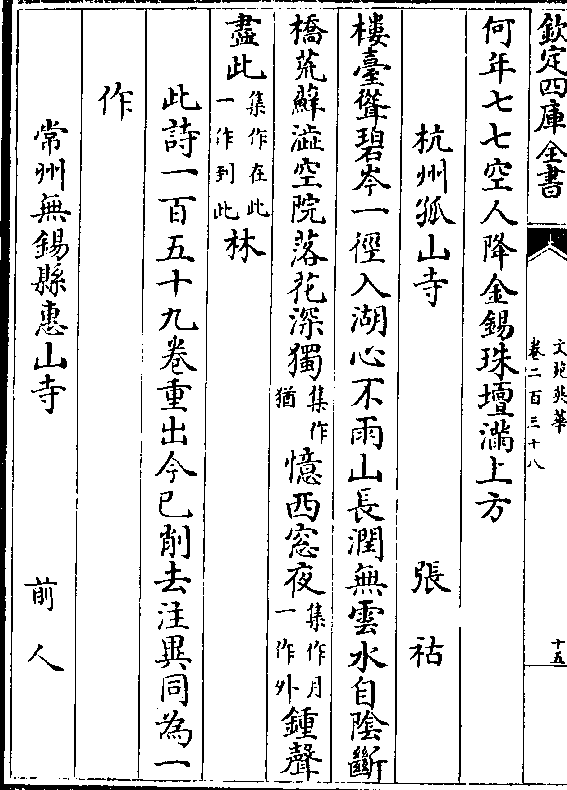 欽定四庫全書
文苑英華
卷二百三十八
十五
何年七七空人降金錫珠壇滿上方
杭州孤山寺 張祜
樓臺聳碧岑一徑入湖心不雨山長潤無雲水自陰斷
橋荒蘚澁空院落花深獨集作猶憶西窓夜集作月一作外鍾聲
盡此集作在此一作到此林
此詩一百五十九卷重出今已削去注異同為一
作
常州無錫縣惠山寺 前人